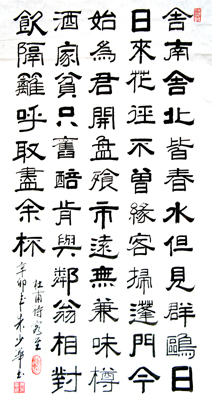 舍南舍北皆春水但見群鷗日
日來花徑不曾緣客掃蓬門今
始為君開盤飧市遠無兼味樽
酒家貧只舊醅肯與鄰翁相對
飲隔籬呼取盡余杯
杜甫詩客至
辛卯年少華書